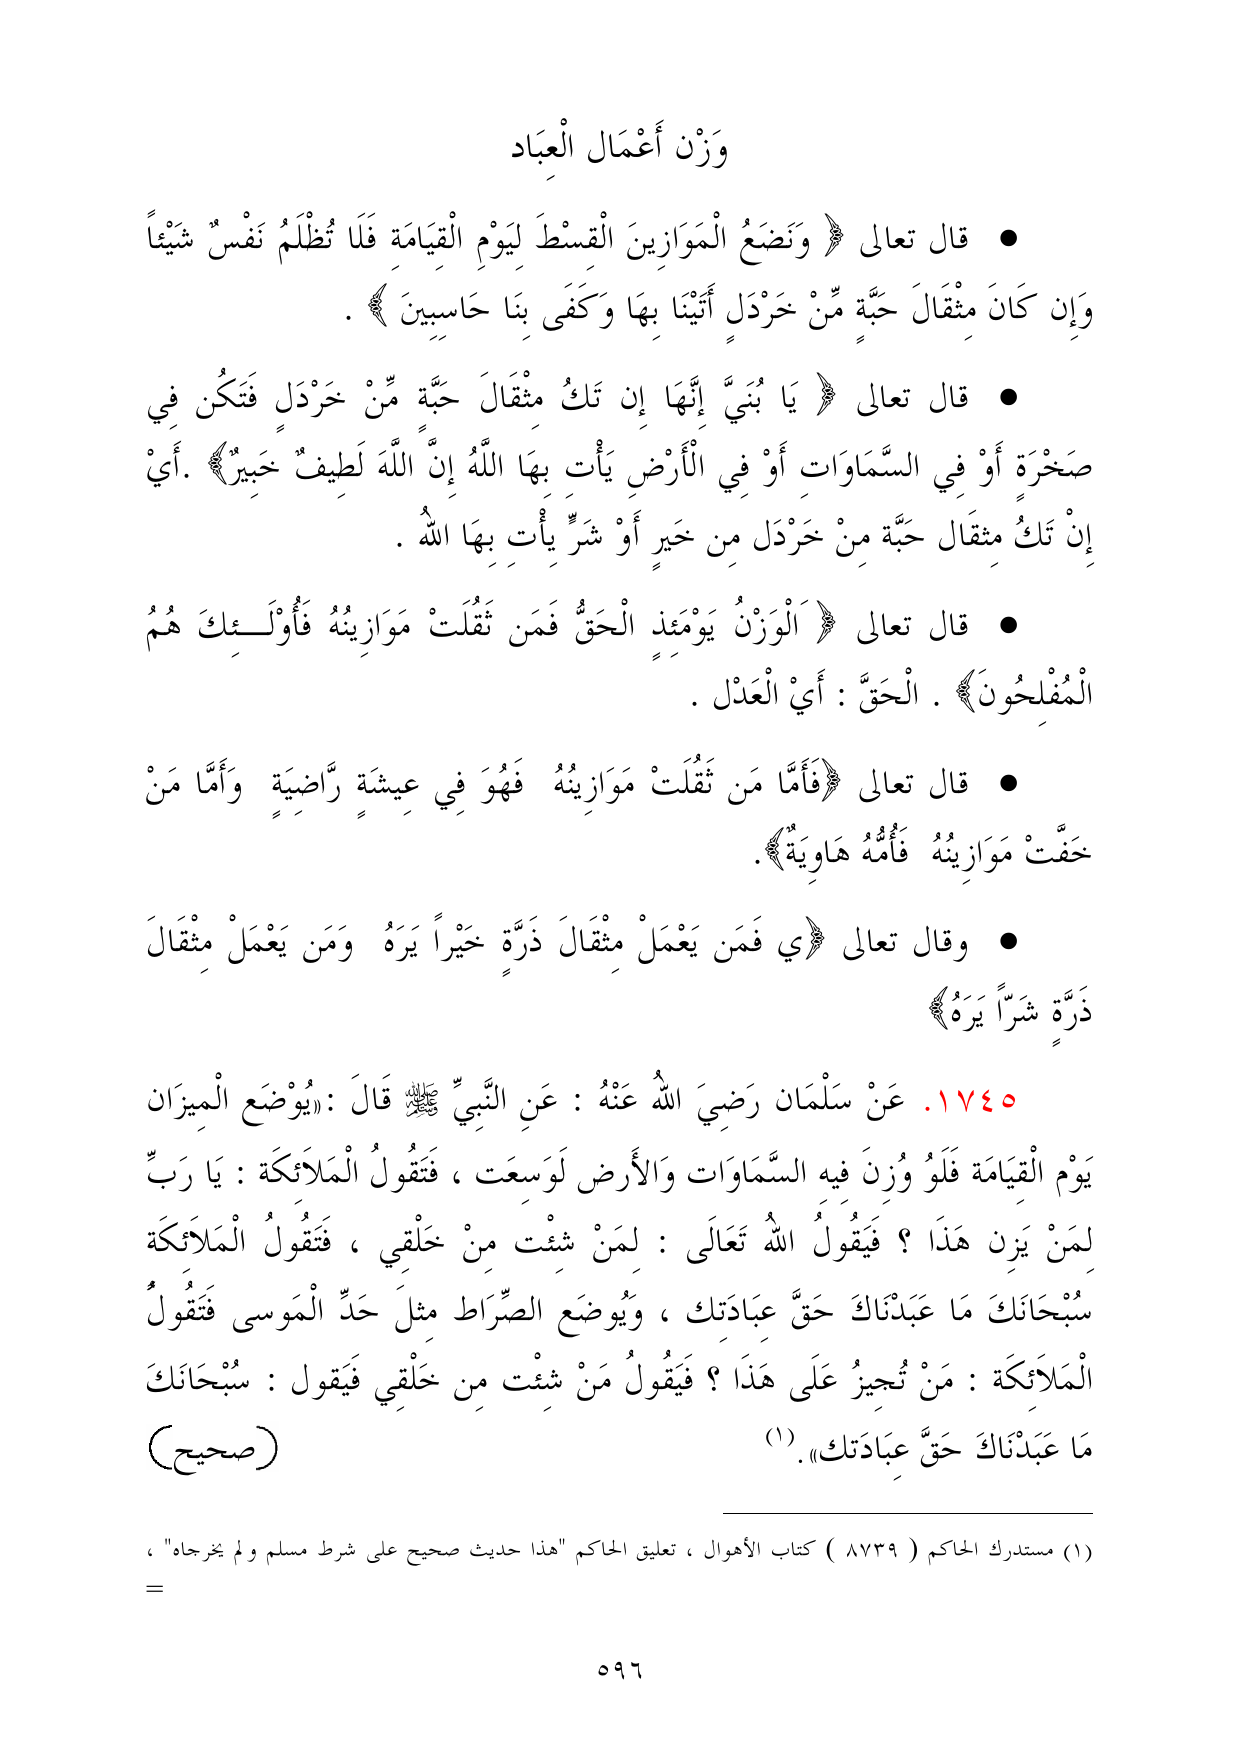 وَزْن أَعْمَال الْعِبَاد
● قال تعالى ﴿ وَنَضَعُ الْمَوَازِينَ الْقِسْطَ لِيَوْمِ الْقِيَامَةِ فَلَا تُظْلَمُ نَفْسٌ شَيْئاً
وَإِن كَانَ مِثْقَالَ حَبَّةٍ مِّنْ خَرْدَلٍ أَتَيْنَا بِهَا وَكَفَى بِنَا حَاسِبِينَ ﴾ .
● قال تعالى ﴿ يَا بُنَيَّ إِنَّهَا إِن تَكُ مِثْقَالَ حَبَّةٍ مِّنْ خَرْدَلٍ فَتَكُن فِي
صَخْرَةٍ أَوْ فِي السَّمَاوَاتِ أَوْ فِي الْأَرْضِ يَأْتِ بِهَا اللَّهُ إِنَّ اللَّهَ لَطِيفٌ خَبِيرٌ﴾ .أَيْ
إِنْ تَكُ مِثقَال حَبَّة مِنْ خَرْدَل مِن خَيرٍ أَوْ شَرٍّ يِأْتِ بِهَا اللهُ .
● قال تعالى ﴿ َالْوَزْنُ يَوْمَئِذٍ الْحَقُّ فَمَن ثَقُلَتْ مَوَازِينُهُ فَأُوْلَـــئِكَ هُمُ
الْمُفْلِحُونَ﴾ . الْحَقَّ : أَيْ الْعَدْل .
● قال تعالى ﴿فَأَمَّا مَن ثَقُلَتْ مَوَازِينُهُ فَهُوَ فِي عِيشَةٍ رَّاضِيَةٍ وَأَمَّا مَنْ
خَفَّتْ مَوَازِينُهُ فَأُمُّهُ هَاوِيَةٌ﴾.
● وقال تعالى ﴿ي فَمَن يَعْمَلْ مِثْقَالَ ذَرَّةٍ خَيْراً يَرَهُ وَمَن يَعْمَلْ مِثْقَالَ
ذَرَّةٍ شَرّاً يَرَهُ﴾
١٧٤٥. عَنْ سَلْمَان رَضِيَ اللهُ عَنْهُ : عَنِ النَّبِيِّ ﷺ قَالَ :«يُوْضَع الْمِيزَان
يَوْم الْقِيَامَة فَلَوُ وُزِنَ فِيهِ السَّمَاوَات وَالأَرض لَوَسِعَت ، فَتَقُولُ الْمَلاَئِكَة : يَا رَبِّ
لِمَنْ يَزِن هَذَا ؟ فَيَقُولُ اللهُ تَعَالَى : لِمَنْ شِئْت مِنْ خَلْقِي ، فَتَقُولُ الْمَلاَئِكَة
سُبْحَانَكَ مَا عَبَدْنَاكَ حَقَّ عِبَادَتِك ، وَيُوضَع الصِّرَاط مِثلَ حَدِّ الْمَوسى فَتَقُولُ
الْمَلاَئِكَة : مَنْ تُجِيزُ عَلَى هَذَا ؟ فَيَقُولُ مَنْ شِئْت مِن خَلْقِي فَيَقول : سُبْحَانَكَ
مَا عَبَدْنَاكَ حَقَّ عِبَادَتك».(١) (صحيح)
(١) مستدرك الحاكم ( ٨٧٣٩ ) كتاب الأهوال ، تعليق الحاكم "هذا حديث صحيح على شرط مسلم ولم يخرجاه" ،
=
٥٩٦